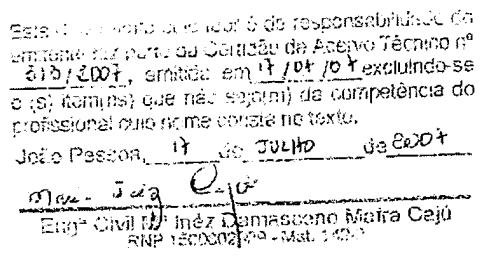 Este documento cujo teor é de responsabilidade da
emitente faz parte da Certidão de Acervo Técnico nº
813/2007, emitida em 17/07/07 excluindo-se
o (s) item(ns) que não seja(m) da competência do
profissional cujo nome consta no texto.
João Pessoa, 17 de JULHO de 2007
Engª Civil Mª Inêz Damasceno Maira Cajú
RNP - Mat.